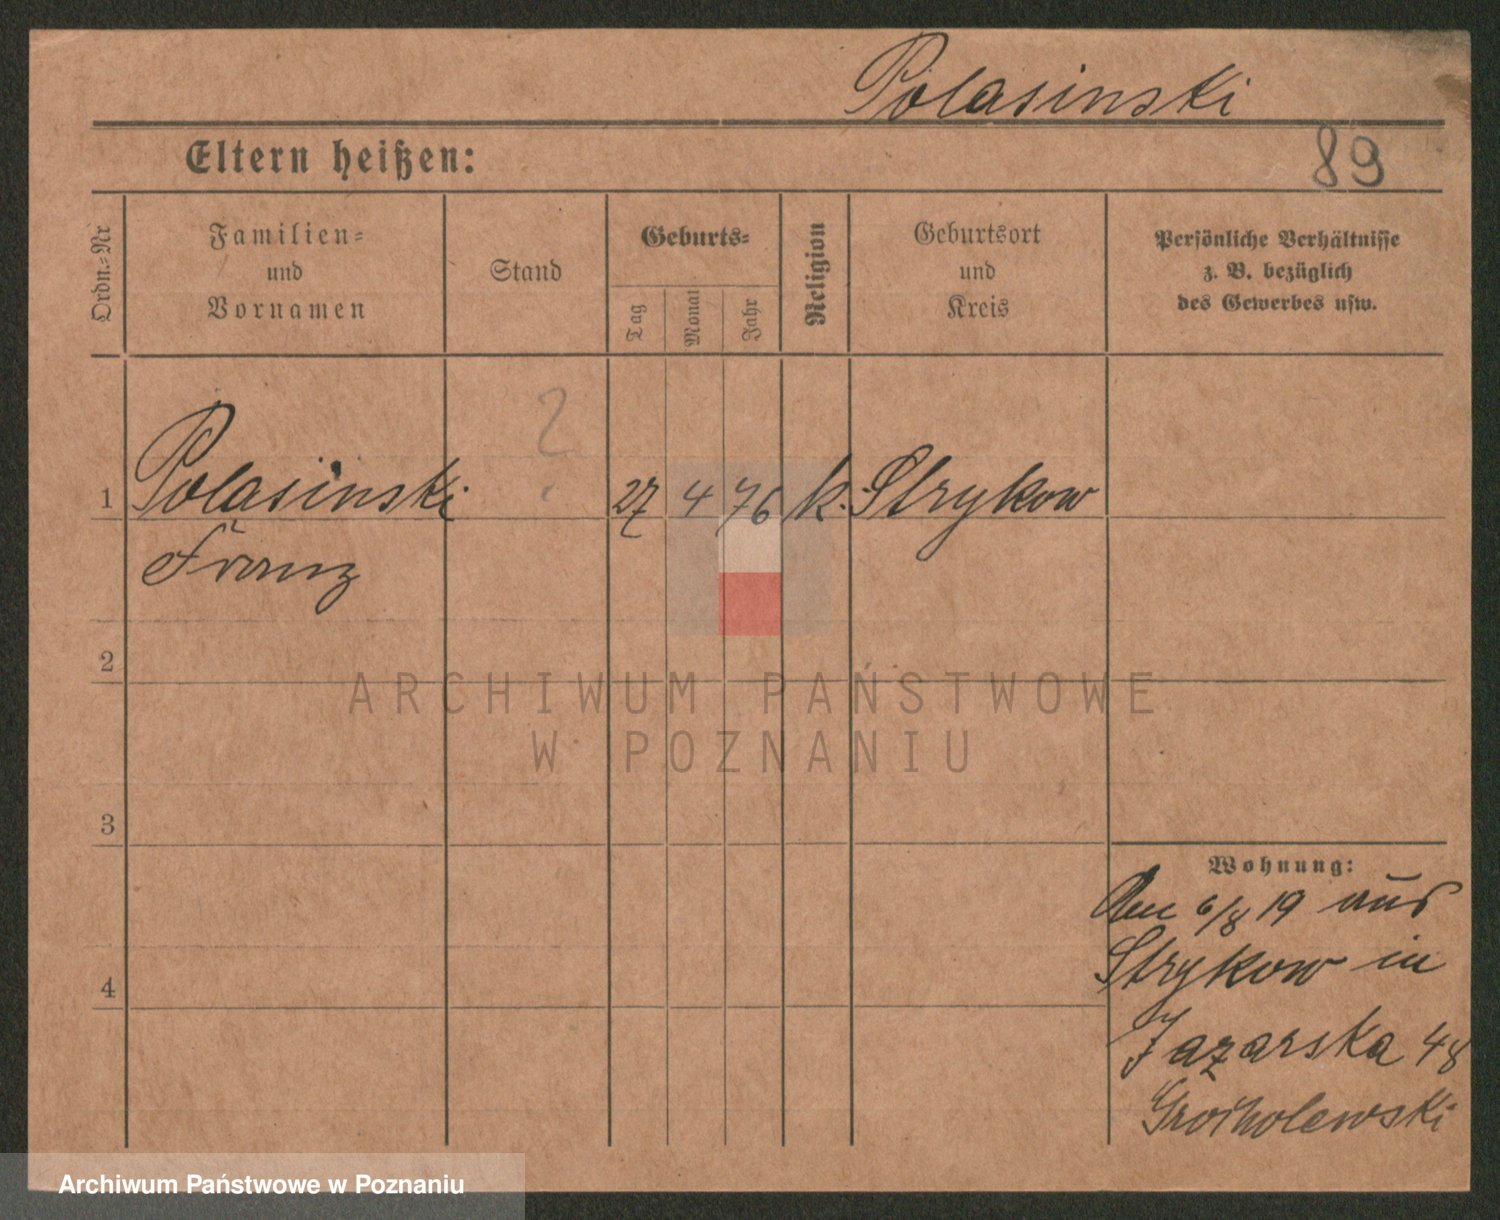 Polasinski
Eltern heißen:
89
Ordn.-Nr
Familien-
und
Vornamen
Stand
Geburts-
Tag
Monat
Jahr
Religion
Geburtsort
und
Kreis
Persönliche Verhältnisse
z. B. bezüglich
des Gewerbes usw.
?
1 Polasinski 27 4 76 k. Strykow
Franz
2
ARCHIWUM PAŃSTWOWE
W POZNANIU
3
Wohnung:
Am 6/8 19 aus
Strykow in
4
Łazarska 48
Archiwum Państwowe w Poznaniu